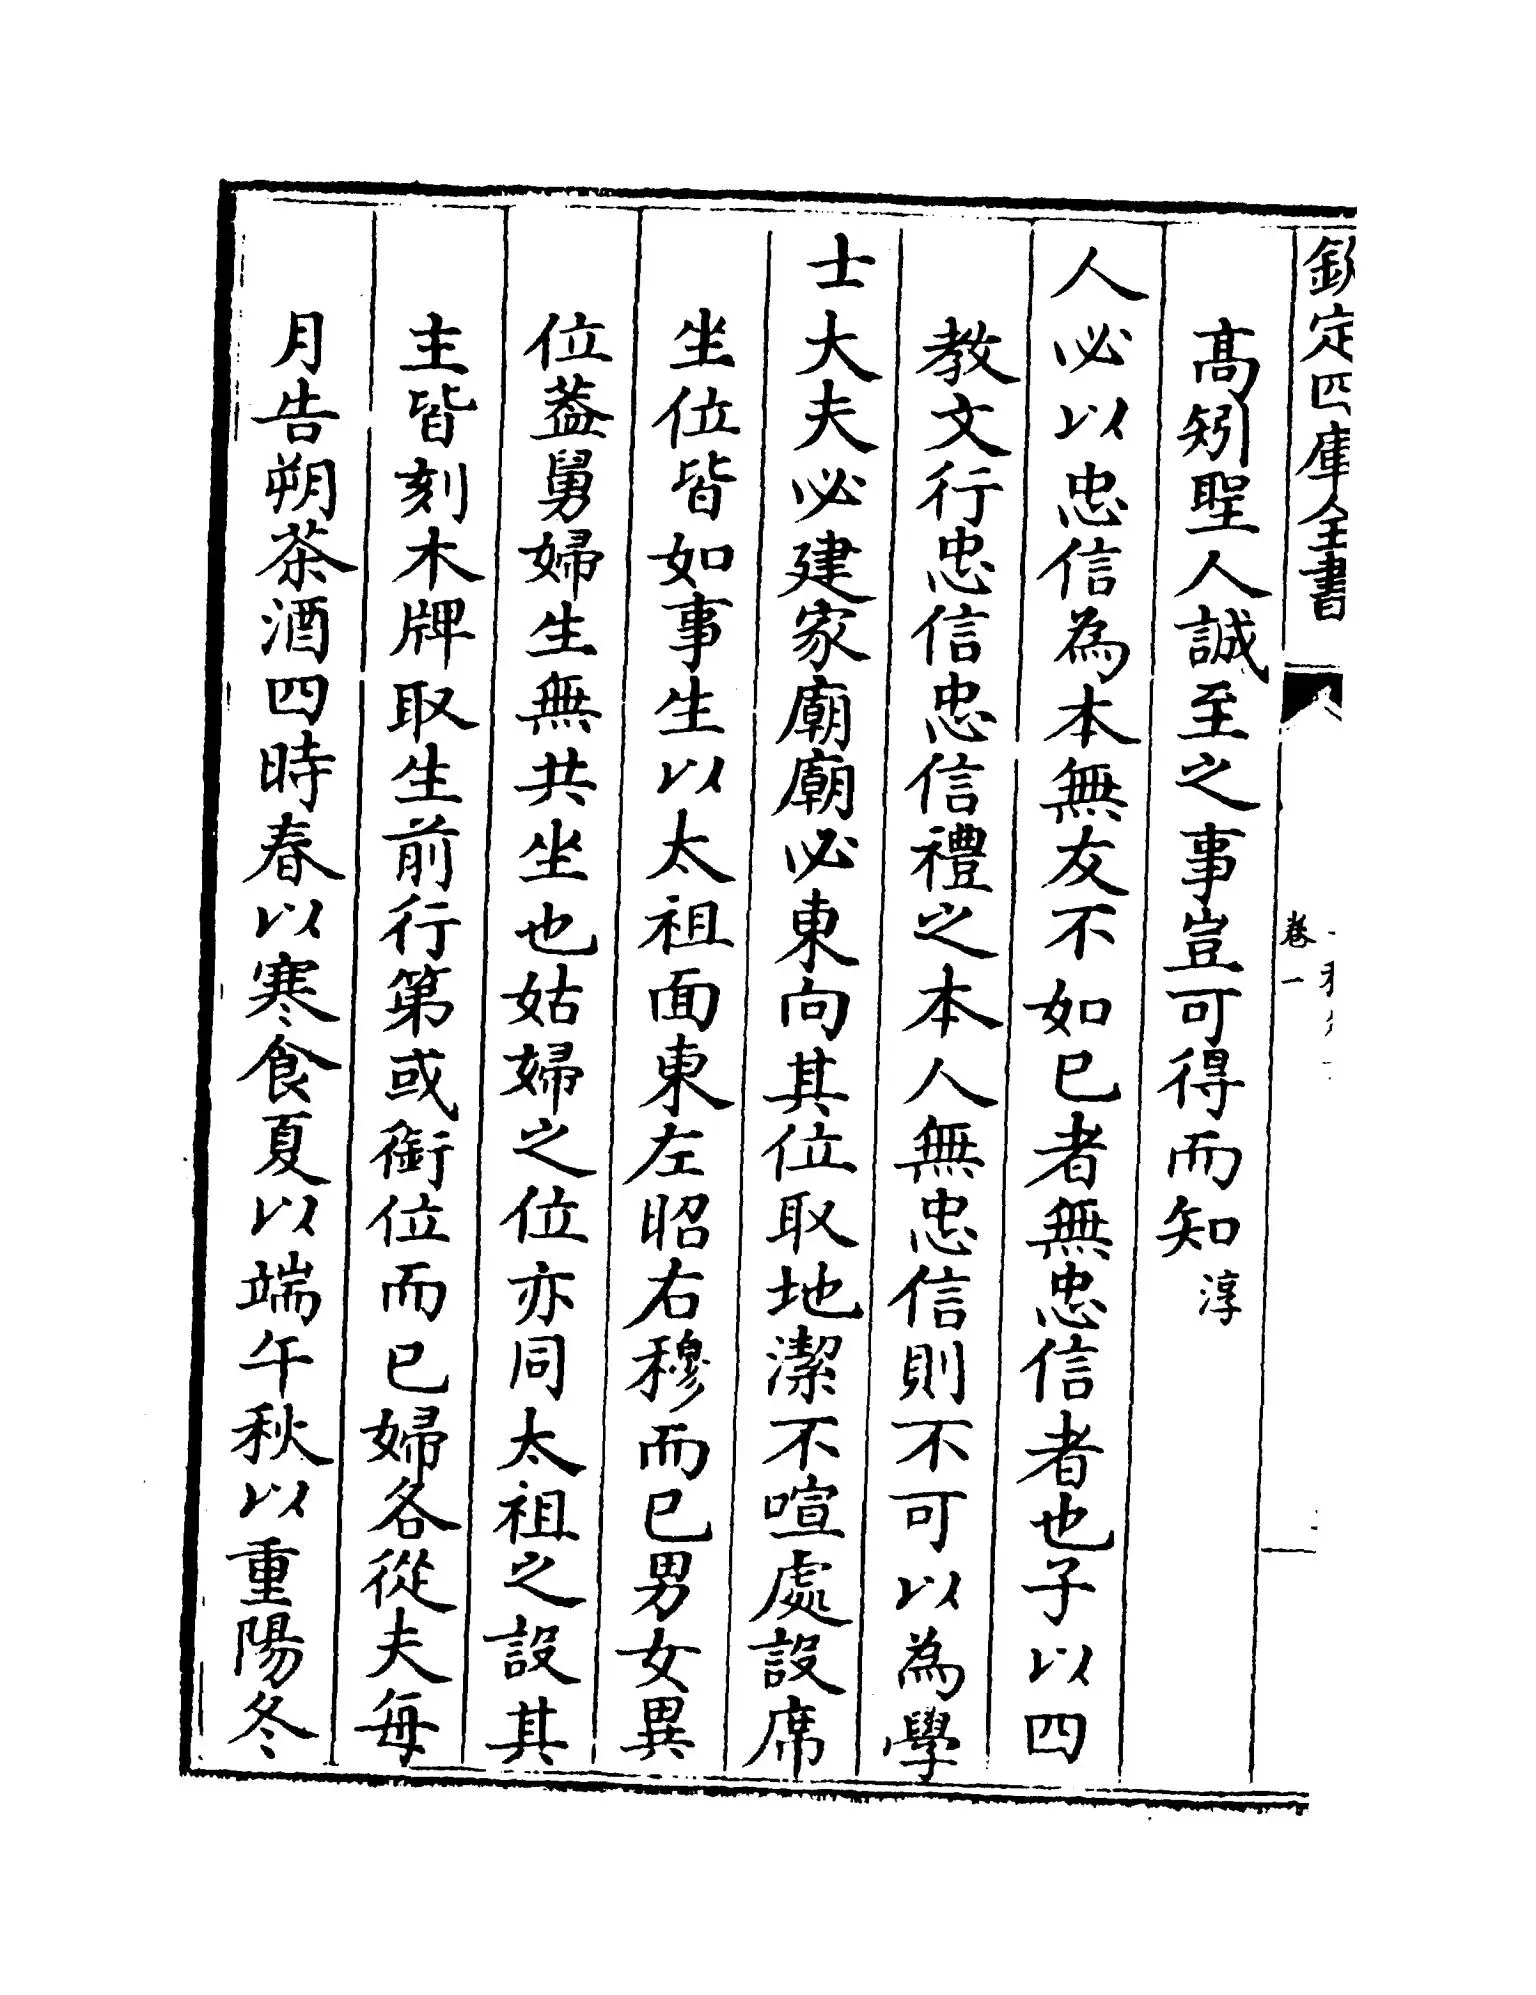 欽定四庫全書
卷一
高矧聖人誠至之事豈可得而知淳
人必以忠信為本無友不如已者無忠信者也子以四
教文行忠信忠信禮之本人無忠信則不可以為學
士大夫必建家廟廟必東向其位取地潔不喧處設席
坐位皆如事生以太祖面東左昭右穆而已男女異
位葢舅婦生無共坐也姑婦之位亦同太祖之設其
主皆刻木牌取生前行第或銜位而已婦各從夫每
月告朔茶酒四時春以寒食夏以端午秋以重陽冬